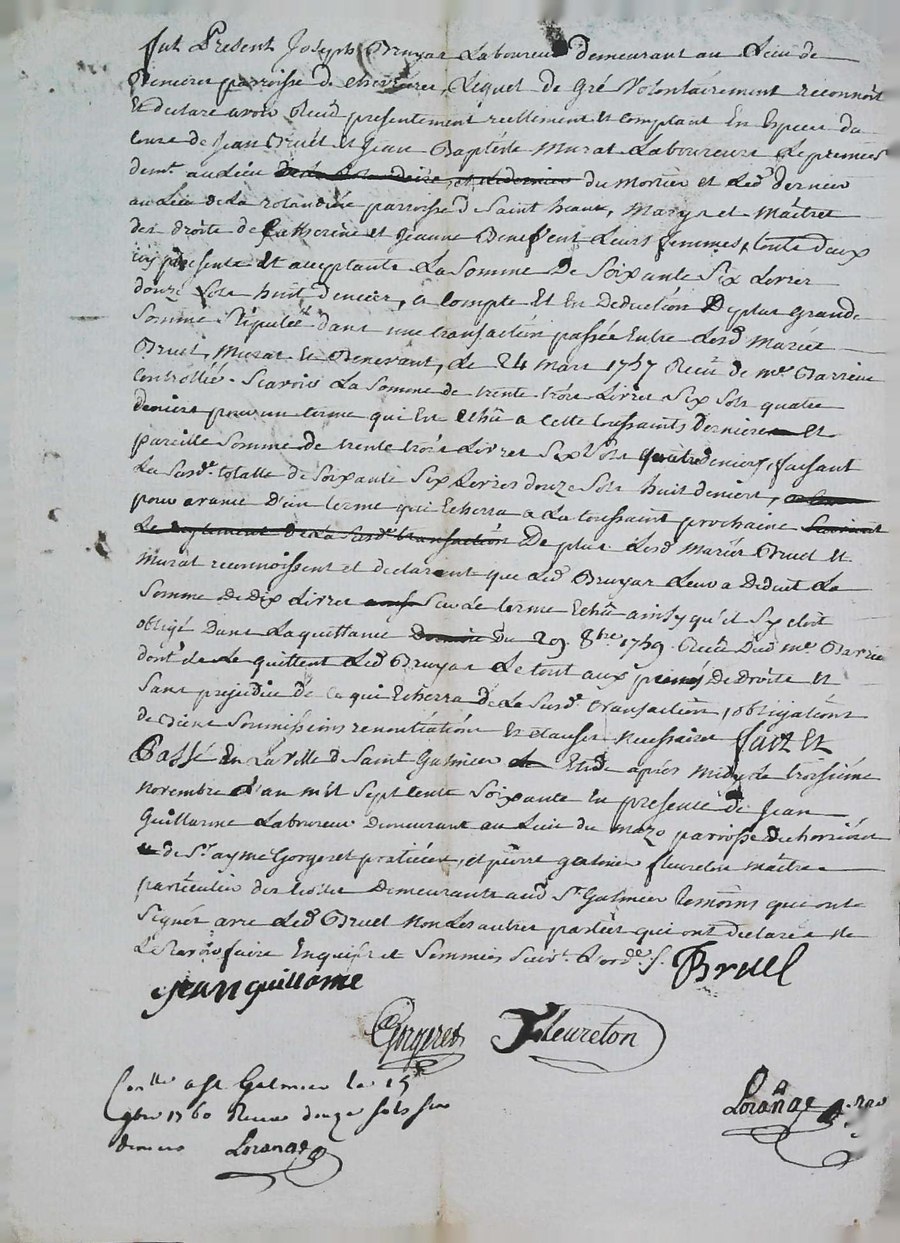 fut Present Joseph Bruyas Laboureur demeurant au Lieu de
parroisse de chevrieres, Lequel de gré Volontairement reconnoit
Et declare avoir Reçû presentement reellement et comptant En Especes du
cours de Jean Bruël et Jean Baptiste Murat Laboureurs Le premier
demt. au Lieu du Mortier et Led. dernier
au Lieu de La rolandiere parroisse de Saint heand, Marys et Maitres
des droits de Catherine et Jeanne Benevent Leurs femmes, touts deux
icy presents Et acceptants La Somme De Soixante Six Livres
douze Sols huit deniers, a Compte Et En Deduction De plus grande
Somme Stipulée dans une transaction passée Entre Lesd. Mariés
Bruel, Murat Et Benevant, Le 24 mars 1757 Reçû de me. Barrieu
Controllée. Scavoir La Somme de trente trois Livres Six Sols quatre
deniers pour un terme qui Est Echû a cette toussaints derniere Et
pareille Somme de trente trois Livres Six Sols quatre deniers, faisant
La Susd. totalle de Soixante Six Livres douze Sols huit deniers,
pour avance d'un terme qui Echerra a La toussaint prochaine
Le reglement de La Susd. transaction De plus Lesd. Mariés Bruel Et
Murat reconnoissent et declarent que Led. Bruyas Leur a Deduit La
Somme De Dix Livres Sur Le terme Echû ainsy qu'il S'y étoit
obligé Dans La quittance Du 29. 8bre 1759. Reçüe Dud. me. Barrieu
dont de Le quittent Led. Bruyas Le tout aux peines De droits Et
Sans prejudice de Ce qui Echerra De La Susd. transaction, obligations
de Biens Soumissions renontiations Et clauses necessaires fait Et
Passé En La ville de Saint Galmier Etude après midy Le troisieme
novembre L'an mil Sept Cents Soixante En presence de Jean
Guillarme Laboureur Demeurant au Lieu du Mazo parroisse de
de Sr. ayme Gorgeret praticien, et pierre galmier fleureton maitre
particulier des Demeurants aud. St. Galmier temoins qui ont
Signés avec Led. Bruel Non Les autres parties qui ont declarés ne
Le Scavoir faire Enquis et Sommés Suivt. L'orde. S.
Bruel
Jean guillarme
Gorgeret Fleureton
Conlle a St Galmier le 15
9bre 1760 Reçu douze sols six
deniers Lorange
Lorange